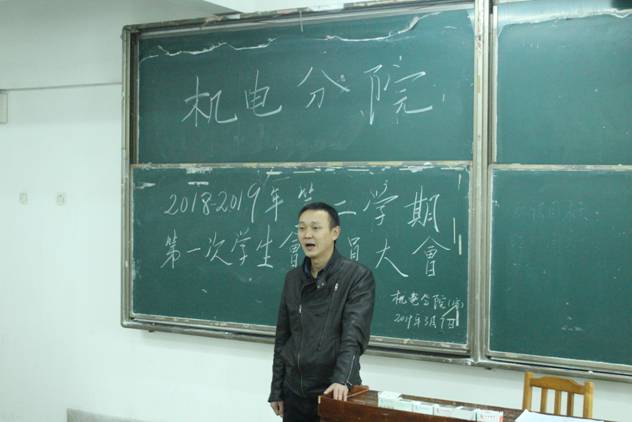 机电分院
2018-2019年第二学期
第一次学生會 員大會
机电分院(宣)
2019年3月7日